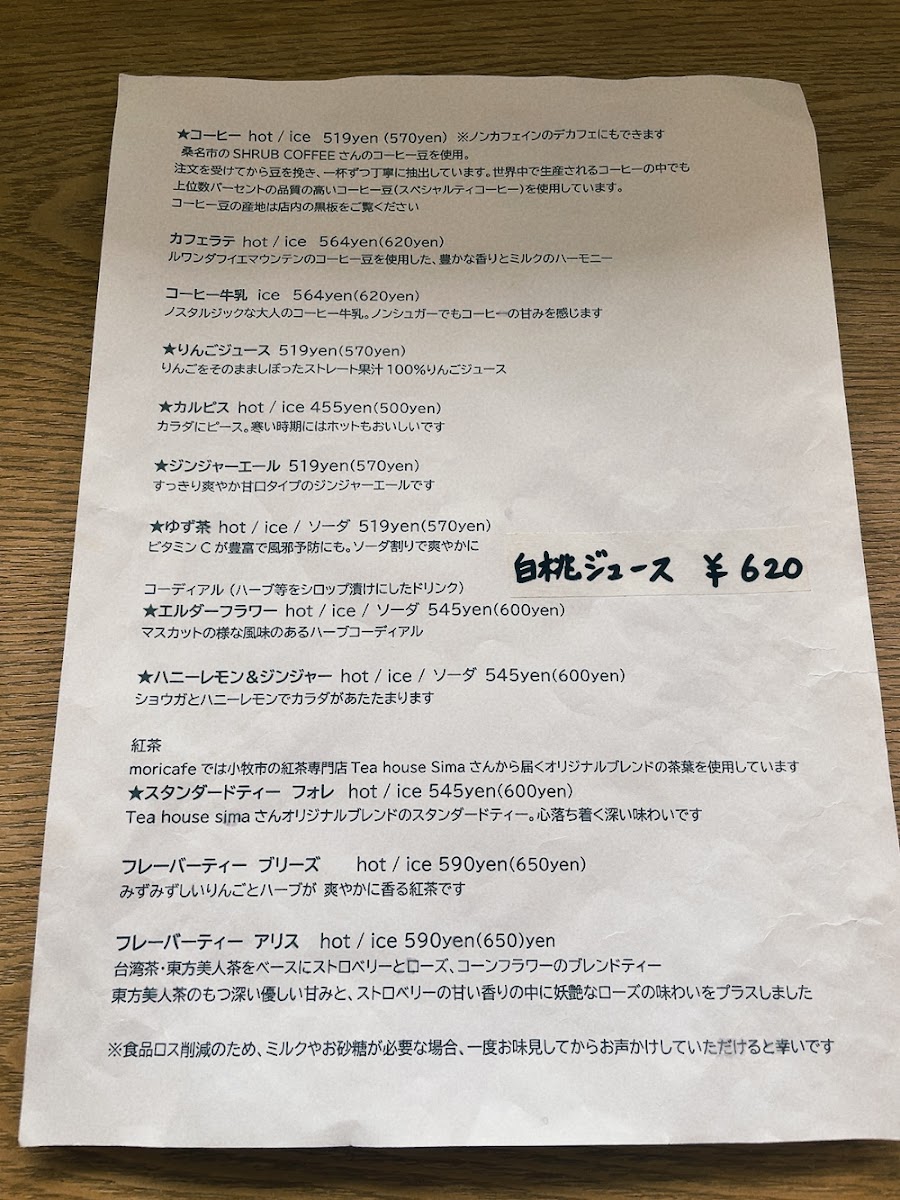 ★コーヒー hot / ice 519yen (570yen) ※ノンカフェインのデカフェにもできます
桑名市の SHRUB COFFEE さんのコーヒー豆を使用。
注文を受けてから豆を挽き、一杯ずつ丁寧に抽出しています。世界中で生産されるコーヒーの中でも
上位数パーセントの品質の高いコーヒー豆(スペシャルティコーヒー)を使用しています。
コーヒー豆の産地は店内の黒板をご覧ください
カフェラテ hot / ice 564yen(620yen)
ルワンダフイエマウンテンのコーヒー豆を使用した、豊かな香りとミルクのハーモニー
コーヒー牛乳 ice 564yen(620yen)
ノスタルジックな大人のコーヒー牛乳。ノンシュガーでもコーヒーの甘みを感じます
★りんごジュース 519yen(570yen)
りんごをそのまましぼったストレート果汁 100%りんごジュース
★カルピス hot / ice 455yen(500yen)
カラダにピース。寒い時期にはホットもおいしいです
★ジンジャーエール 519yen(570yen)
すっきり爽やか甘口タイプのジンジャーエールです
★ゆず茶 hot / ice / ソーダ 519yen(570yen)
ビタミン C が豊富で風邪予防にも。ソーダ割りで爽やかに
白桃ジュース ¥620
コーディアル (ハーブ等をシロップ漬けにしたドリンク)
★エルダーフラワー hot / ice / ソーダ 545yen(600yen)
マスカットの様な風味のあるハーブコーディアル
★ハニーレモン&ジンジャー hot / ice / ソーダ 545yen(600yen)
ショウガとハニーレモンでカラダがあたたまります
紅茶
moricafe では小牧市の紅茶専門店 Tea house Sima さんから届くオリジナルブレンドの茶葉を使用しています
★スタンダードティー フォレ hot / ice 545yen(600yen)
Tea house sima さんオリジナルブレンドのスタンダードティー。心落ち着く深い味わいです
フレーバーティー ブリーズ hot / ice 590yen(650yen)
みずみずしいりんごとハーブが 爽やかに香る紅茶です
フレーバーティー アリス hot / ice 590yen(650)yen
台湾茶・東方美人茶をベースにストロベリーとローズ、コーンフラワーのブレンドティー
東方美人茶のもつ深い優しい甘みと、ストロベリーの甘い香りの中に妖艶なローズの味わいをプラスしました
※食品ロス削減のため、ミルクやお砂糖が必要な場合、一度お味見してからお声かけしていただけると幸いです